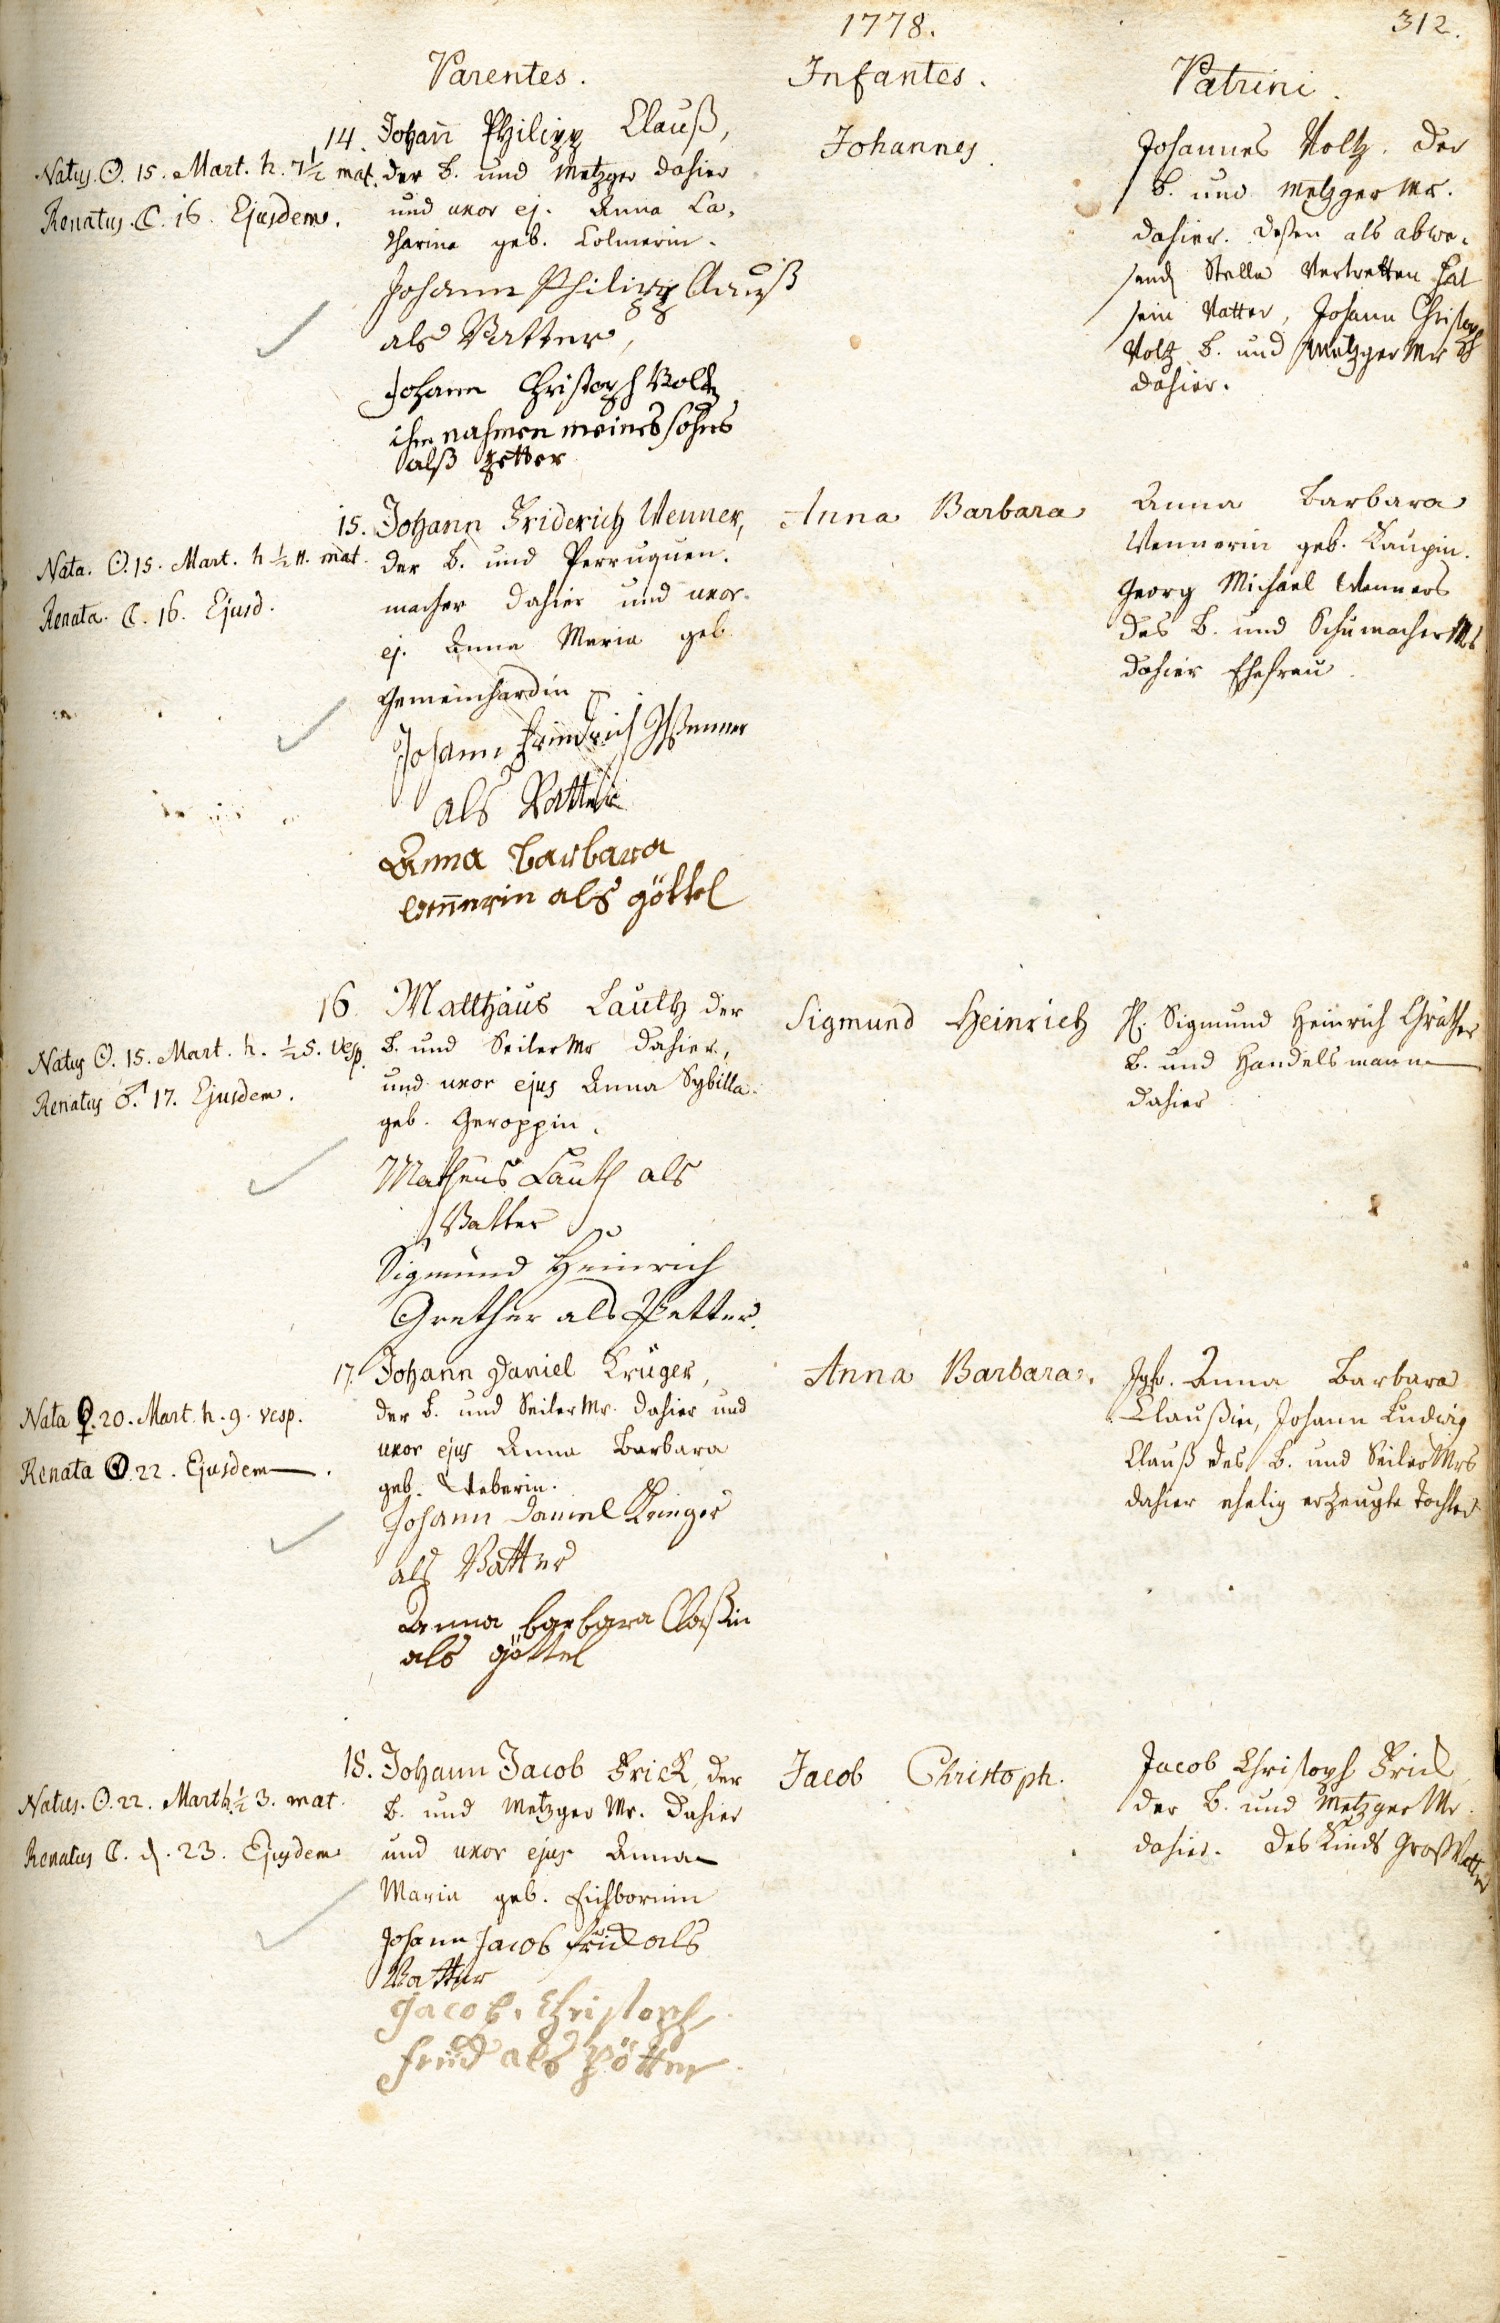 1778.
312.
Parentes.
Infantes.
Patrini.
14. Johañ Philipp Clauß,
der B. und Metzger dahier
und uxor ej. Anna Ca-
tharina geb. Colmerin.
Johann Philipp Clauß
als Vatter,
Johann Christoph Voltz
ihm nahmen meines sohns
alß petter
Natus. ☉. 15. Mart. h. 7½ mat.
Renatus. ☾. 16. Ejusdem.
Johannes
Johannes Voltz. der
B. und Metzger Mr.
dahier. deßen als abwe-
send Stelle Vertretten hat
sein Vatter, Johann Christoph
Voltz B. und Metzger Mr
dahier.
15. Johann Friderich Wenner,
der B. und Perruquen-
macher dahier und uxor
ej. Anna Maria geb.
Gemeinhardin
Johann Friedrich Wenner
als Vatter
Anna barbara
Weñerin als göttel
Nata. ☉. 15. Mart. h ½ 11. mat.
Renata. ☾. 16. Ejusd.
Anna Barbara
Anna Barbara
Wennerin geb. Kaupin.
Georg Michael Wenners
des B. und Schumacher Mrs
dahier Ehefrau.
16. Matthäus Lauth der
B. und Seiler Mr dahier,
und uxor ejus Anna Sybilla
geb. Geroppin.
Matheus Lauth als
Vatter
Sigmund Heinrich
Grether als Petter.
Natus ☉. 15. Mart. h. ½ 5. vesp.
Renatus ♂. 17. Ejusdem.
Sigmund Heinrich
H. Sigmund Heinrich Gräther
B. und Handelsmann
dahier
17. Johann Daniel Krüger,
der B. und Seiler Mr. dahier und
uxor ejus Anna Barbara
geb. Weberin.
Johann Daniel Krieger
als Vatter
Anna barbara Claßin
als göttel
Nata ♀. 20. Mart. h. 9. vesp.
Renata ☉. 22. Ejusdem.
Anna Barbara.
Jgfr. Anna Barbara
Claußin, Johann Ludwig
Clauß des B. und Seiler Mrs
dahier ehelig erzeugte Tochter
18. Johann Jacob Frick, der
B. und Metzger Mr. dahier
und uxor ejus Anna
Maria geb. Eichbornin
Johann Jacob frick als
Vatter
Jacob Christoph
frick als Pötter
Natus. ☉. 22. Mart h. ½ 3. mat.
Renatus ☾. d. 23. Ejusdem
Jacob Christoph.
Jacob Christoph Frick
der B. und Metzger Mr.
dahier. des Kinds Groß Vatter